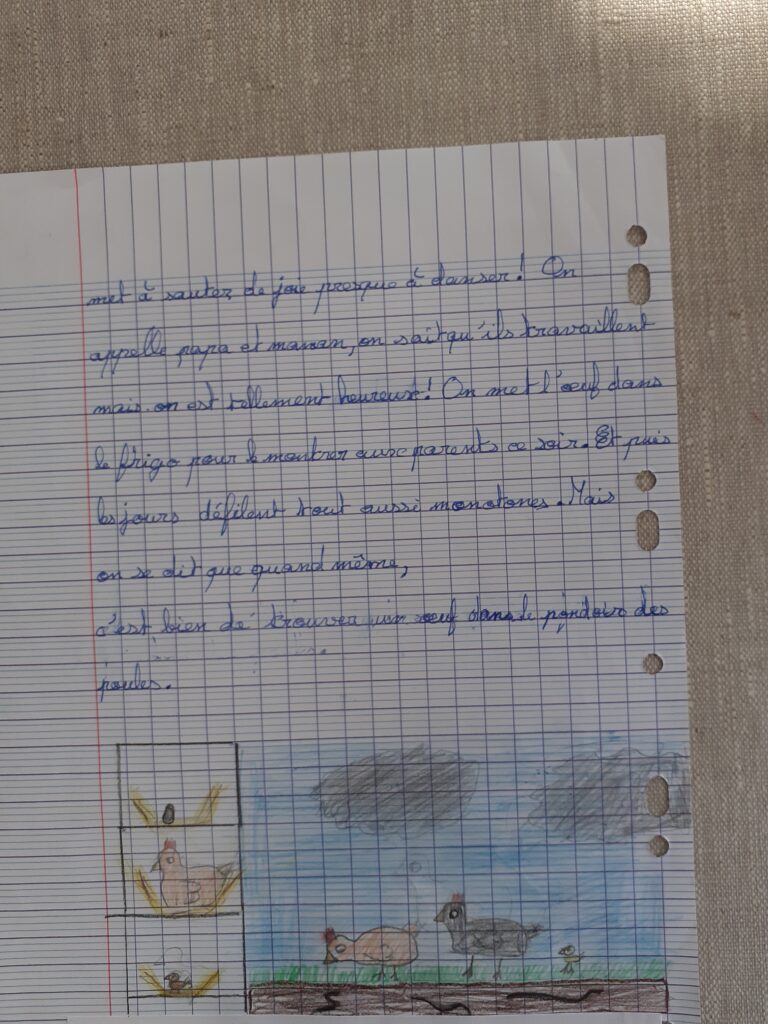 met à sauter de joie presque à danser! On
appelle papa et maman, on sait qu'ils travaillent
mais on est tellement heureux! On met l'œuf dans
le frigo pour le montrer aux parents ce soir. Et puis
les jours défilent tout aussi monotones. Mais
on se dit que quand même,
c'est bien de trouver un œuf dans le pondoir des
poules.